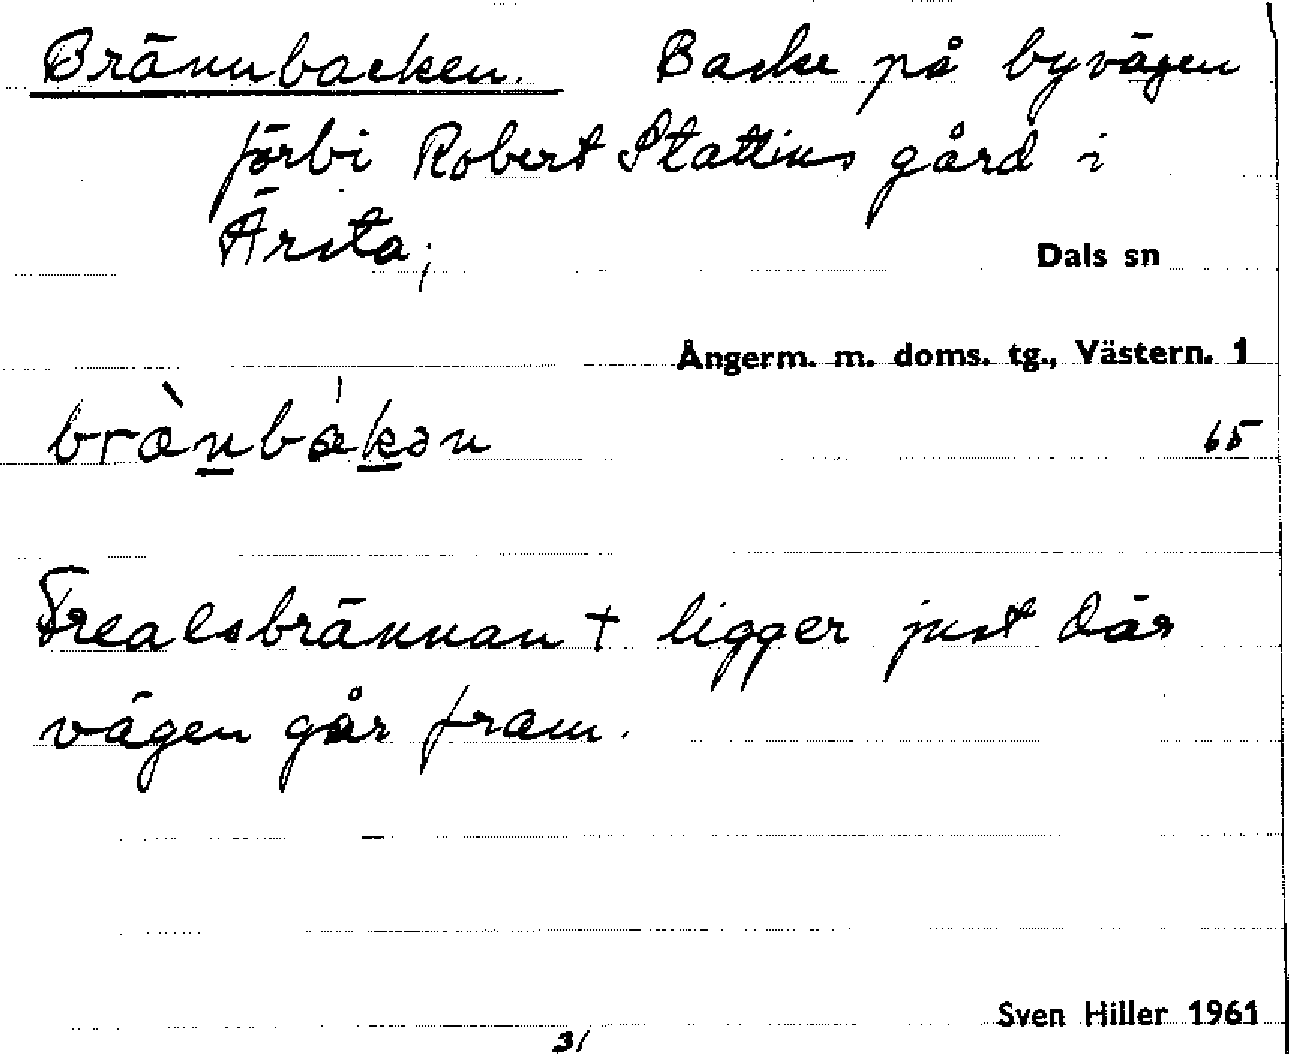 Brännbacken. Backe på byvägen
förbi Robert Stattins gård i
Ärsta;
Dals sn
Ångerm. m. doms. tg., Västern. 1
bræ̀n̲bák̲ən
65
Frealsbrännan + ligger just där
vägen går fram.
Sven Hiller 1961
31